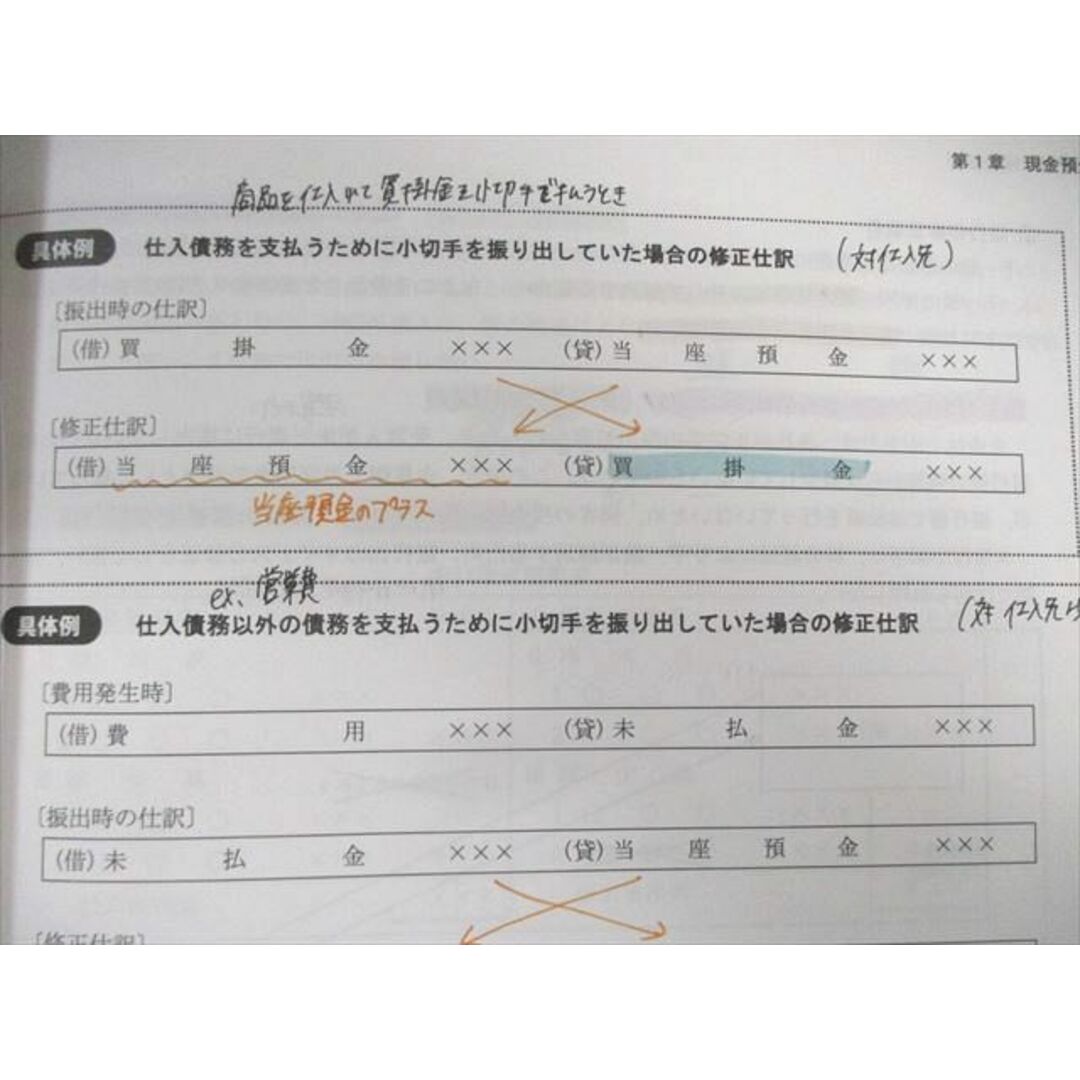 第1章 現金預
商品を仕入れて買掛金を小切手で払うとき
具体例 仕入債務を支払うために小切手を振り出していた場合の修正仕訳 (対仕入先)
〔振出時の仕訳〕
(借) 買 掛 金 ××× (貸) 当 座 預 金 ×××
〔修正仕訳〕
(借) 当 座 預 金 ××× (貸) 買 掛 金 ×××
当座預金のプラス
ex、営業費
具体例 仕入債務以外の債務を支払うために小切手を振り出していた場合の修正仕訳 (対 仕入先
〔費用発生時〕
(借) 費 用 ××× (貸) 未 払 金 ×××
〔振出時の仕訳〕
(借) 未 払 金 ××× (貸) 当 座 預 金 ×××
〔修正仕訳〕